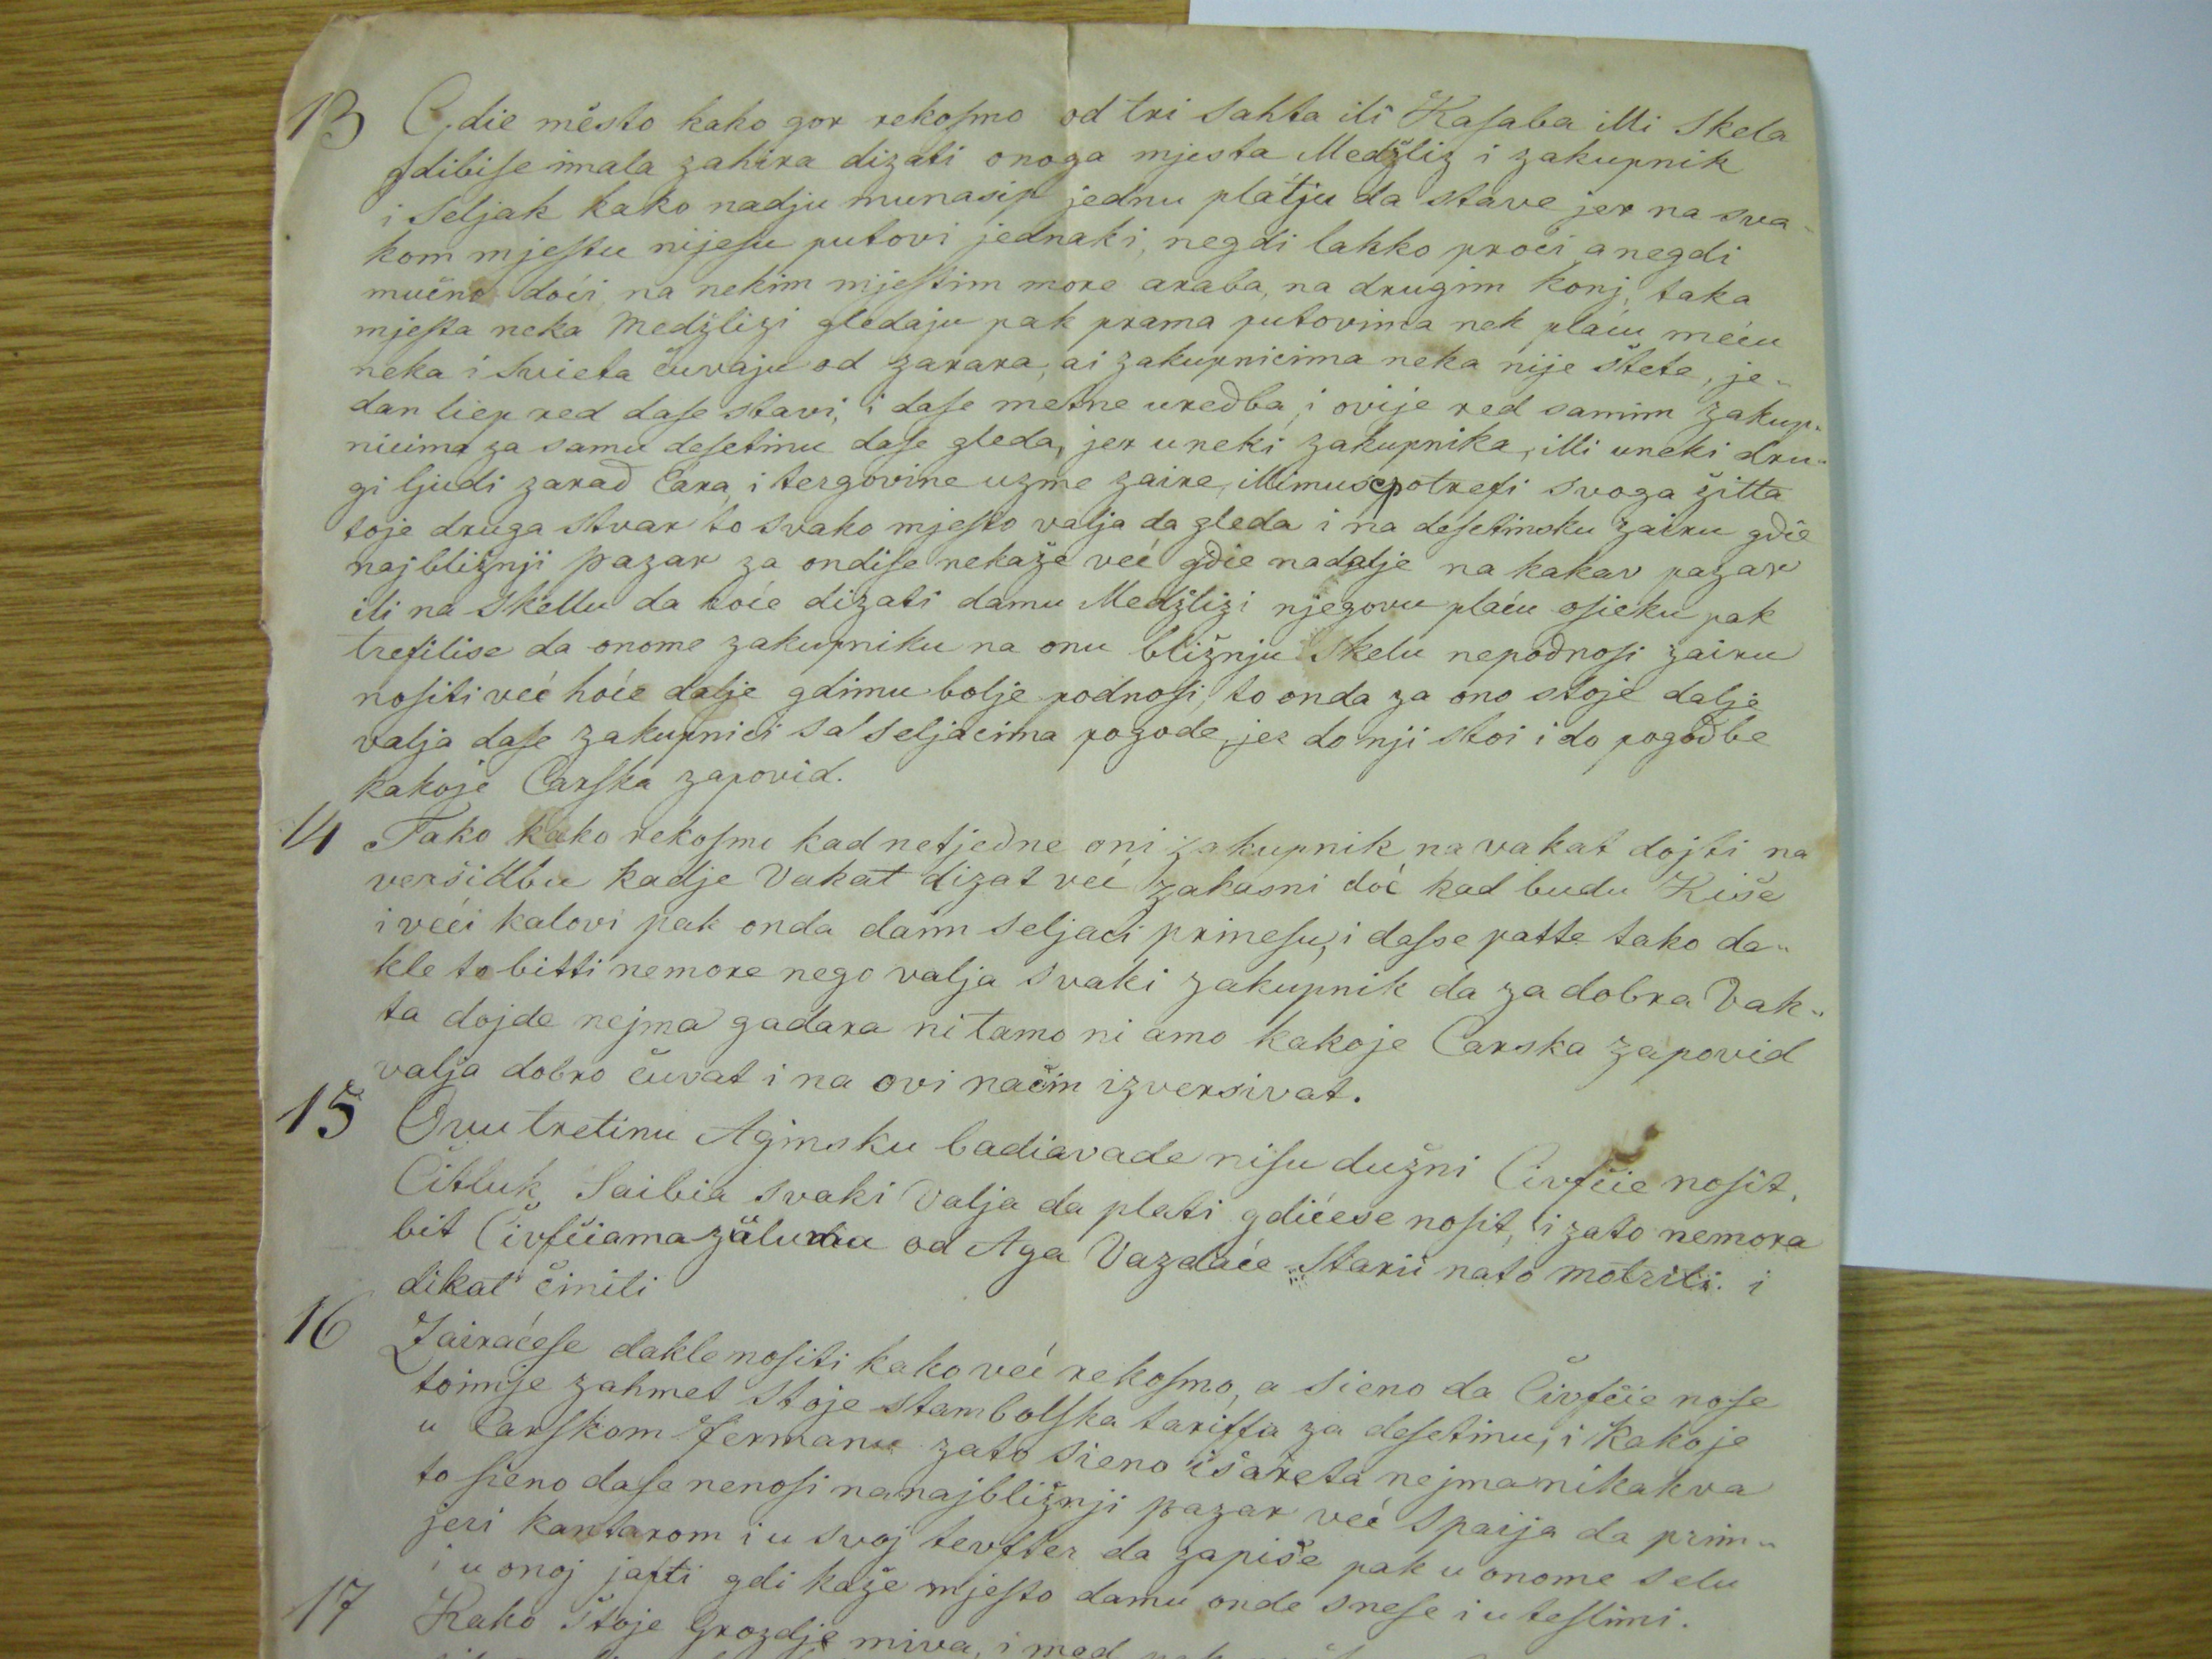 13 Gdie město kako gor rekoſmo od tri sahta ili Kaſaba illi Skela
gdibiſe imala zahira dizati onoga mjesta Medžliz i zakupnik
i Seljak kako nadju munasip jednu platju da stave jer na sva-
kom mjeſtu nijeſu putovi jednaki, negdi lahko proći a negdi
mučno doći, na nekim mjeſtim more araba, na drugim konj, taka
mjeſta neka Medžlizi gledaju pak prama putovima nek plaću meću
neka i Svieta čuvaju od zarara, ai zakupnicima neka nije štete, je-
dan liep red daſe stavi, i daſe metne uredba, i ovije red samim zakup-
nicima za samu deſetinu daſe gleda, jer uneki zakupnika, illi uneki dru-
gi ljudi zarad Ćara, i tergovine uzme zaire, illimuse potrefi svoga žitta
toje druga stvar to svako mjeſto valja da gleda i na deſetinsku zairu gdie
najbližnji pazar za ondiſe nekaže već gdie nadalje na kakav pazar
ili na Skellu da hoće dizati damu Medžlizi njegovu plaću oſieku pak
trefilise da onome zakupniku na onu bližnju Skelu nepodnoſi zairu
noſiti već hoće dalje gdimu bolje podnoſi, to onda za ono stoje dalje
valja daſe zakupnici sa Seljacima pogode, jer do nji stoi i do pogodbe
kakoje Carſka zapovid.
14 Tako kako rekoſmo kad netjedne oni zakupnik na vakat dojti na
veršidbu kadje Vakat dizat već zakasni doć kad budu Kiše
i veći kalovi pak onda daim seljaci prineſu, i daſse patte tako da-
kle to bitti nemore nego valja svaki zakupnik da za dobra Vak-
ta dojde nejma gadara ni tamo ni amo kakoje Carska zapovid
valja dobro čuvat i na ovi način izversivat.
15 Ovu tretinu Aginsku badiavade niſu dužni Čivfčie noſit,
Čitluk Saibia svaki Valja da plati gdićese noſit, i zato nemora
bit Čivfčiama zuluma od Aga Vazdaće Starii nato motriti i
dikat činiti
16 Zairaćeſe dakle noſiti kako već rekoſmo, a sieno da Čivfčie noſe
toimje zahmet Stoje stambolſka tariffa za deſetinu, i kakoje
u Carſkom Fermanu zato sieno išareta nejma nikakva
to ſieno daſe nenoſi na najbližnji pazar već Spaija da prim-
jeri kantarom i u svoj tevfter da zapiše pak u onome selu
i u onoj jafti gdi kaže mjeſto damu onde sneſe i u teſlimi.
17 Kako Štoje Grozdje miva, i med pak